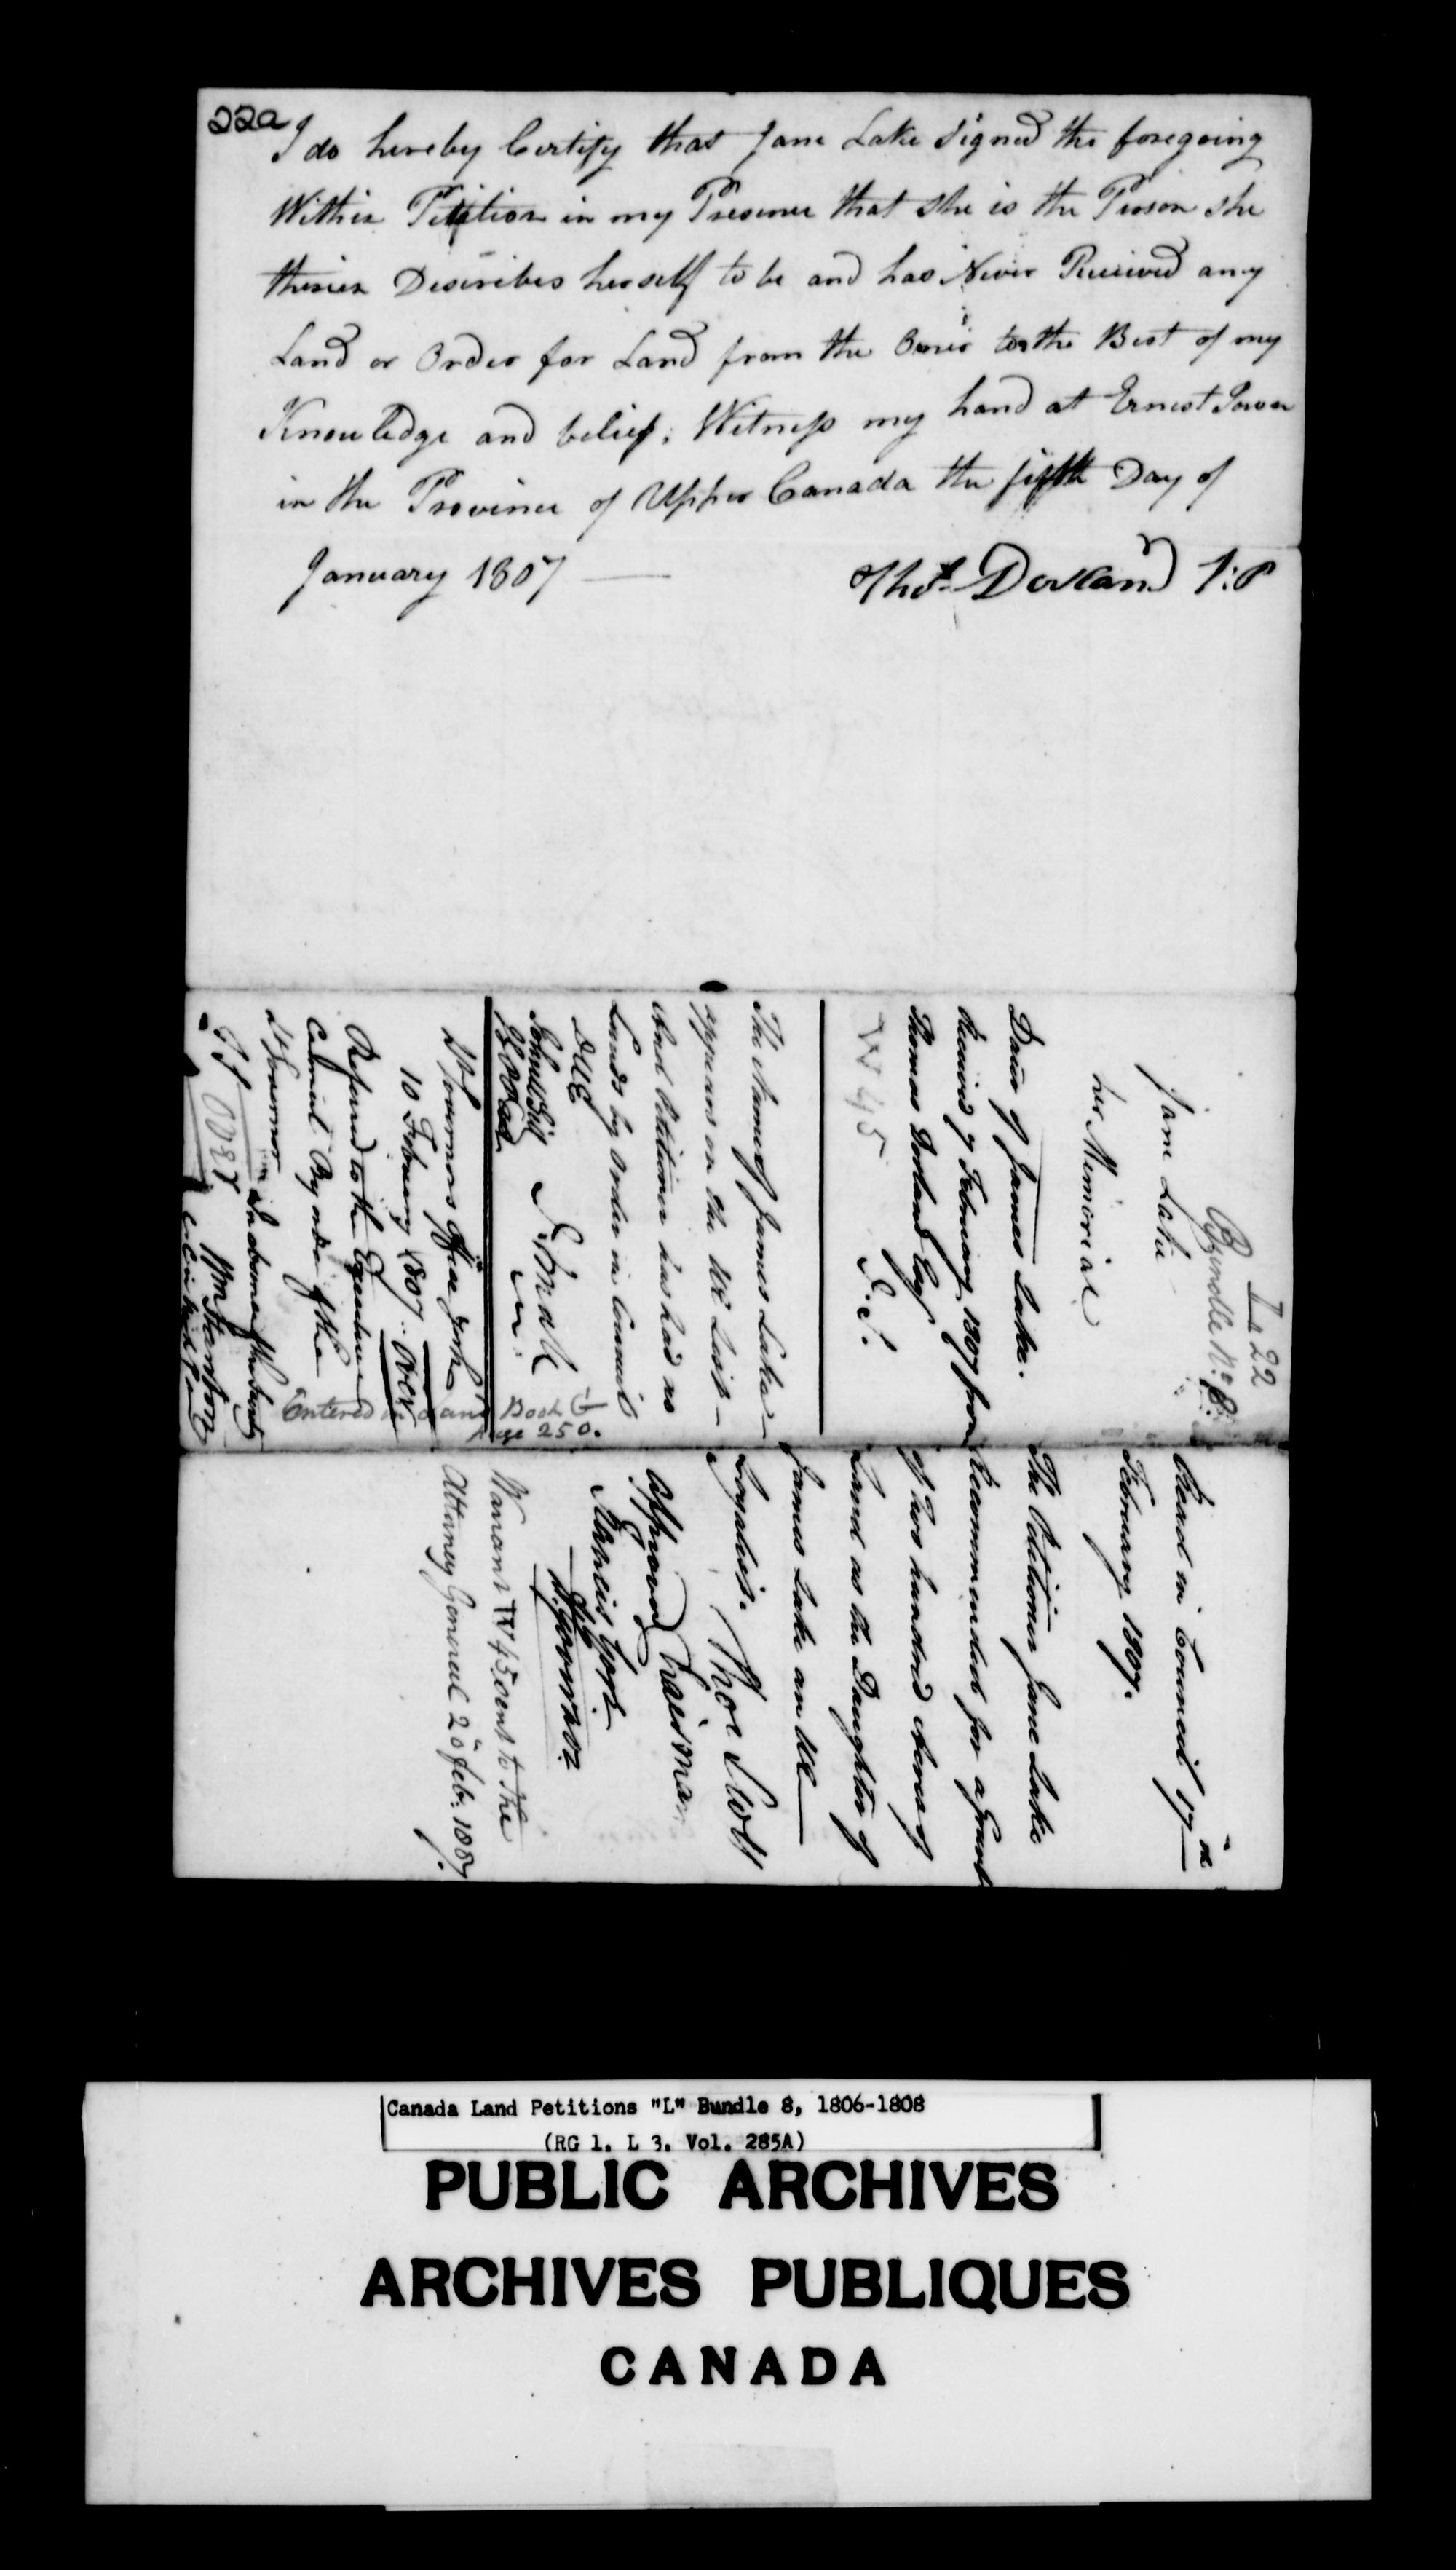 22a
I do hereby Certify that Jane Lake Signed the foregoing
Within Petition in my Presence that she is the Person she
therein Describes herself to be and has Never Received any
Land or Order for Land from the Crown to the Best of my
Knowledge and belief; Witness my hand at Ernest Town
in the Province of Upper Canada the fifth Day of
January 1807 Thos. Dorland J:P
L 22
Bundle No. 8.
Jane Lake
her Memorial
Daur. of James Lake.
Received 7 February 1807 from
Thomas Dorland Esq
P.S.
W 45
The Name of James Lake
appears on the UE List
And Petitioner has had no
Lands by Order in Council
DUE
John Small
Lt Governors Office York
10 February 1807
over
Referred to the Executive
Council By order of the
Lt Governor
Wm Stanton
Entered in Land Book G
page 250.
Read in Council 17th
February 1807.
The Petitioner Jane Lake
Recommended for a Grant
of Two hundred Acres of
Land as the Daughter of
James Lake an UE
Loyalist.
Thos Scott
Chairman
Approved
Francis Gore
Lt. Governor
Warrant W 45 sent to the
Attorney General 20 Feb: 1807.
Canada Land Petitions "L" Bundle 8, 1806-1808
(RG 1, L 3, Vol. 285A)
PUBLIC ARCHIVES
ARCHIVES PUBLIQUES
CANADA